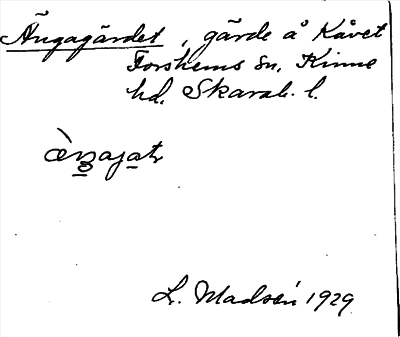 Ängagärdet, gärde å Kåvet
Forshems sn, Kinne
hd. Skarab. l.
L. Madsén 1929